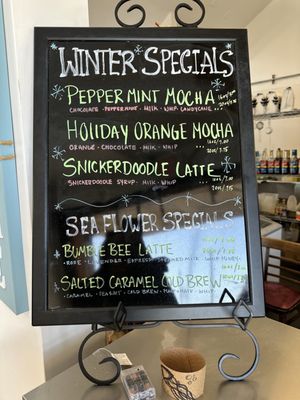 WINTER SPECIALS
PEPPERMINT MOCHA
CHOCOLATE - PEPPERMINT - MILK - WHIP CANDYCANE
HOLIDAY ORANGE MOCHA
ORANGE - CHOCOLATE - MILK - WHIP
SNICKERDOODLE LATTE
SNICKERDOODLE SYRUP - MILK - WHIP
SEA FLOWER SPECIALS
BUMBLE BEE LATTE
ROSE - LAVENDER - ESPRESSO - STEAMED MILK - WHIP HONEY
SALTED CARAMEL COLD BREW
CARAMEL - SEA SALT - COLD BREW - WHIP